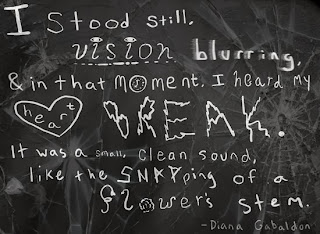 I Stood still,
vision blurring,
& in that moment, I heard my
heart BREAK.
It was a small, clean sound,
like the SNAPping of a
flower's stem.
-Diana Gabaldon